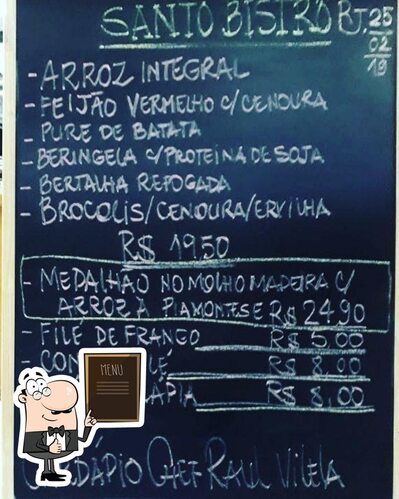 SANTO BISTRÔ BJ. 25
02
19
- ARROZ INTEGRAL
- FEIJÃO VERMELHO C/CENOURA
- PURE DE BATATA
- BERINGELA C/PROTEÍNA DE SOJA
- BERTALHA REFOGADA
- BROCOLIS/CENOURA/ERVILHA
R$ 19,50
- MEDALHÃO NO MOLHO MADEIRA C/
ARROZ À PIAMONTESE R$ 24,90
- FILÉ DE FRANGO R$ 5,00
R$ 8,00
R$ 8,00
MENU
CHEF RAUL VILELA